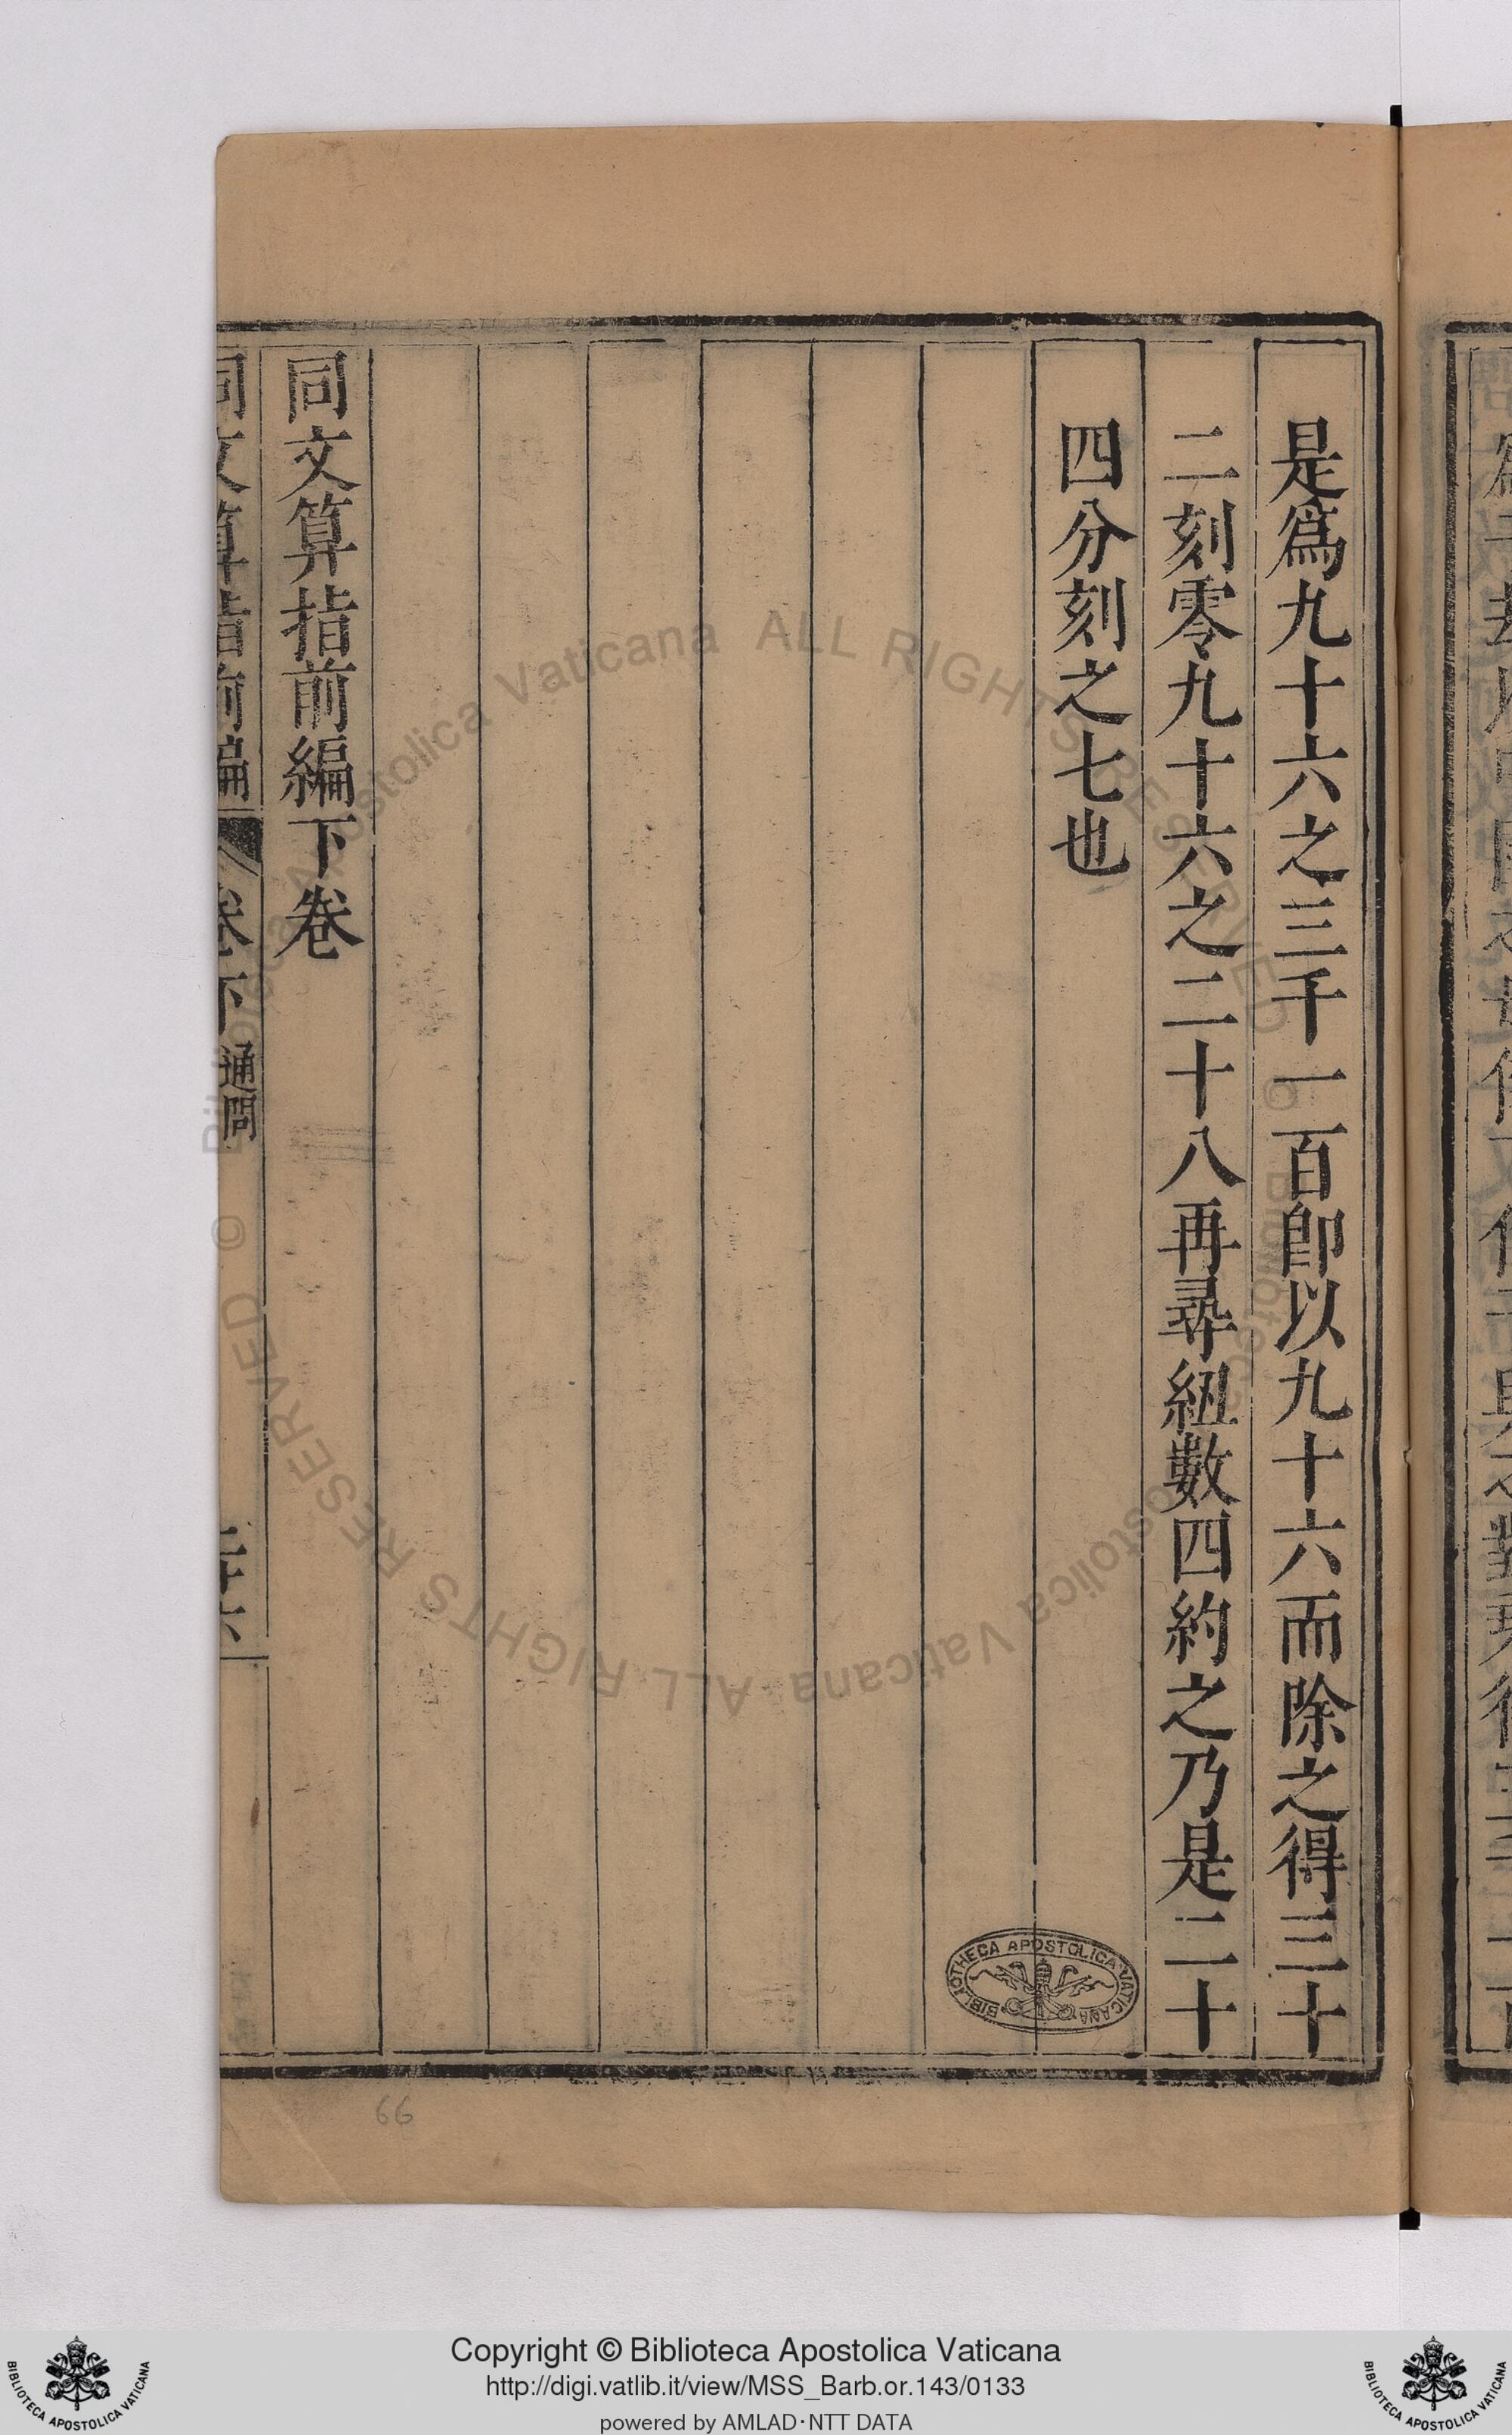 是爲九十六之三千一百卽以九十六而除之得三十
二刻零九十六之二十八再尋紐數四約之乃是二十
四分刻之七也
同文算指前編下卷
同文算指前編
卷下
通問
二十六
66
BIBLIOTHECA APOSTOLICA VATICANA
Copyright © Biblioteca Apostolica Vaticana
http://digi.vatlib.it/view/MSS_Barb.or.143/0133
powered by AMLAD·NTT DATA